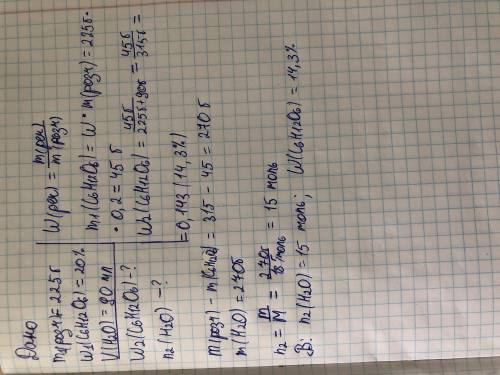 Дано
m1(розч)=225б
W1(C6H12O6)=20%
V(H2O)=90 мл
W2(C6H12O6)-?
n2(H2O)-?
W(реч)=m(реч)/m(розч)
m1(C6H12O6)=W•m(розч)=225б•
•0,2=45б
W2(C6H12O6)=45б/225б+90б=45б/315б=
=0,143(14,3%)
m(розч)-m(C6H12O6)=315-45=270б
m(H2O)=270б
n2=m/M=270б/18б/моль=15 моль
В: n2(H2O)=15 моль; W(C6H12O6)=14,3%